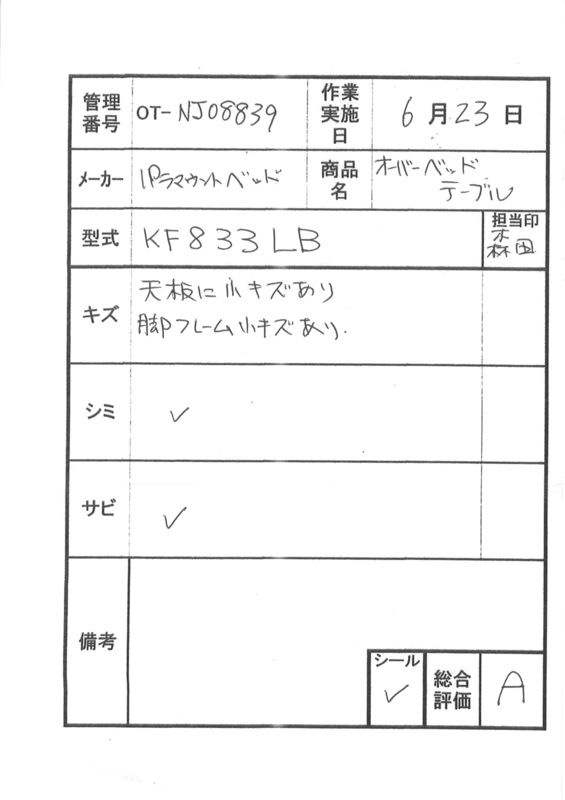 管理番号 OT-NJ08839 作業実施日 6月23日
メーカー パラマウントベッド 商品名 オーバーベッドテーブル
型式 KF833LB 担当印 森田
キズ 天板に小キズあり
脚フレーム小キズあり.
シミ ✓
サビ ✓
備考
シール ✓ 総合評価 A